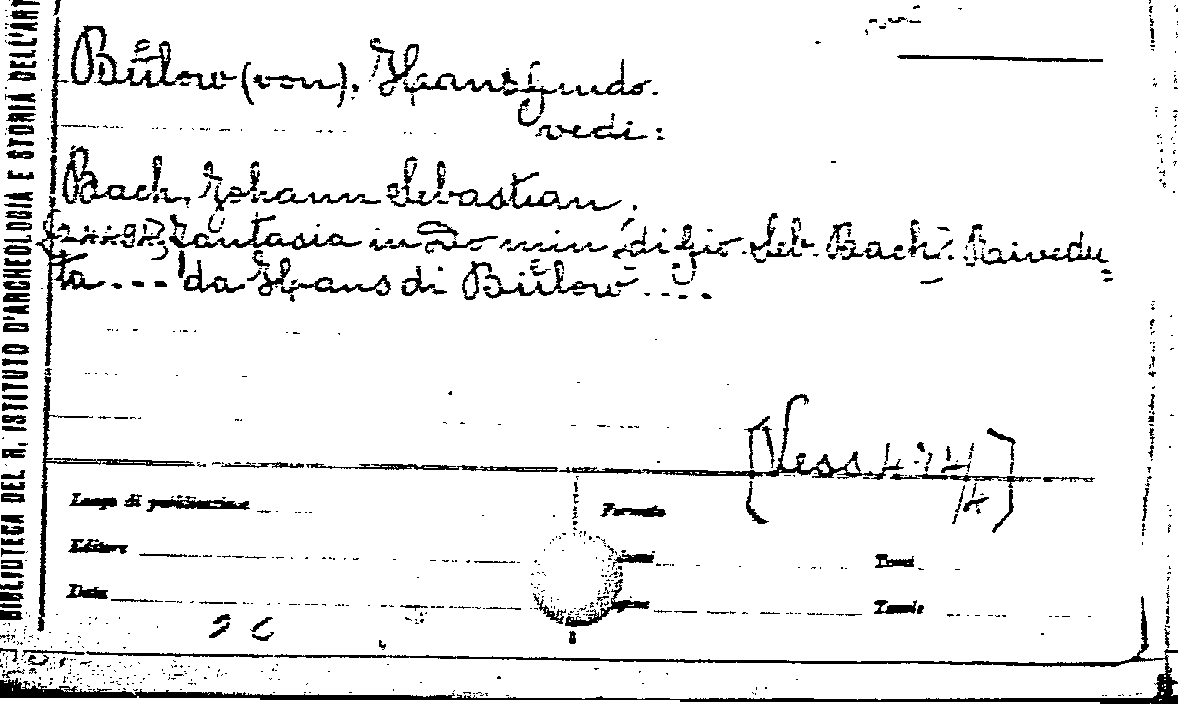 BIBLIOTECA DEL R. ISTITUTO D'ARCHEOLOGIA E STORIA DELL'ART
Bülow (von), Hans Guido.
vedi:
Bach, Johann Sebastian.
Fantasia in Do min. di Gio. Seb. Bach. Rivedu
ta... da Hans di Bülow....
[Vess.
Luogo di pubblicazione
Formato
Editore
Tomi
Data
Tavole